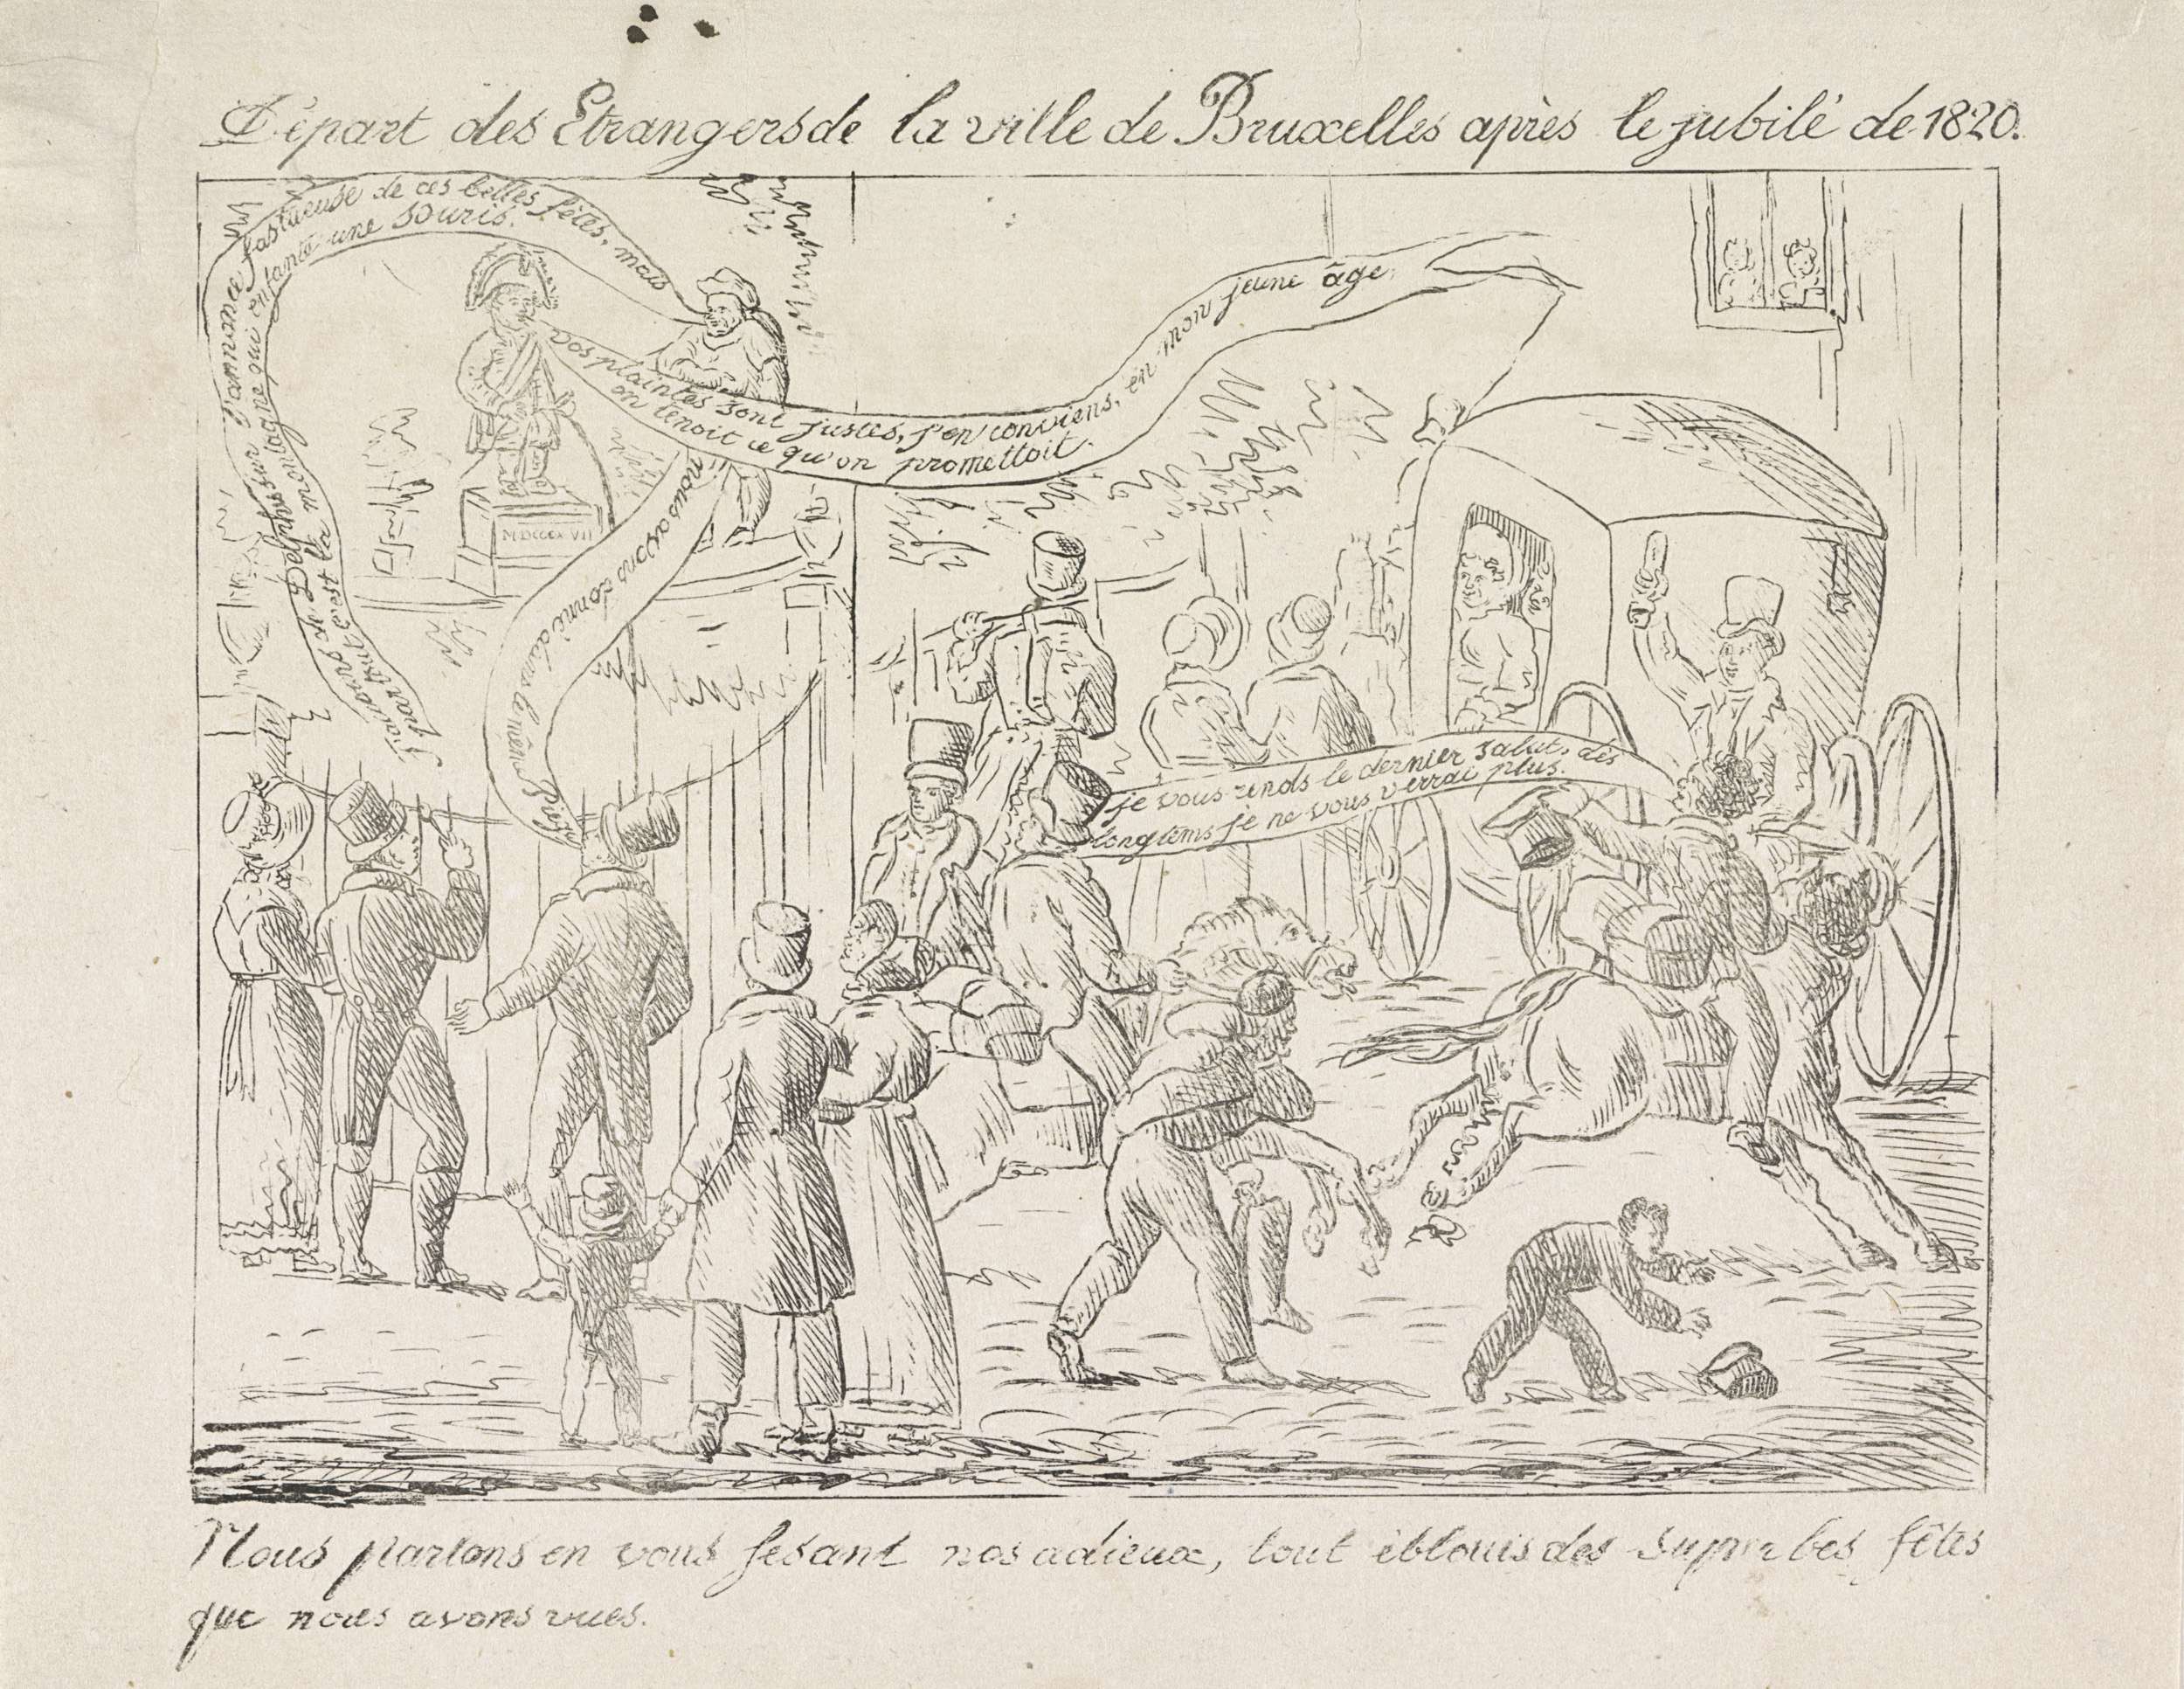 Départ des Etrangers de la ville de Bruxelles après le jubilé de 1820.
sur l'annonce fastueuse de ces belles fêtes, mais
par tout c'est la montagne qui enfante une souris.
vos plaintes sont justes, j'en conviens, en mon jeune âge,
on tenoit ce qu'on promettoit.
MDCCCXVII
nous avons donné dans le même piège
je vous rends le dernier salut, dès
longtems je ne vous verrai plus.
Nous partons en vous fesant nos adieux, tout éblouis des superbes fêtes
que nous avons vues.